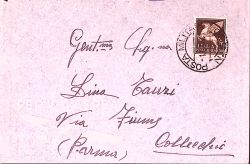 Gent.ma Sig.na
Lina Tanzi
Via Fiume
(Parma) Collecchio
POSTA MILITARE